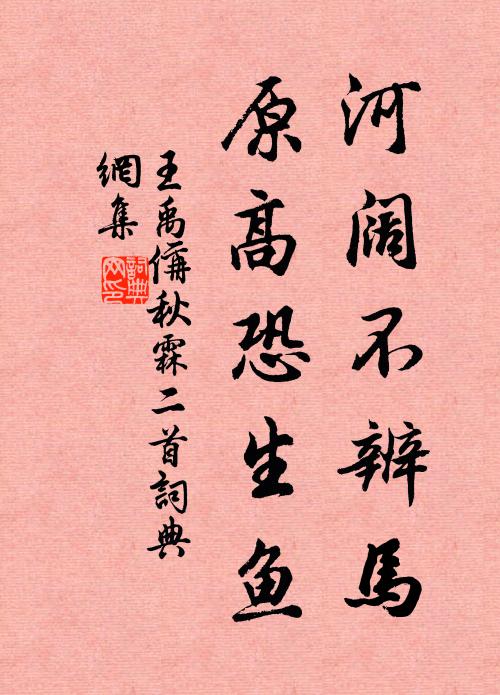 河阔不辨馬
原高恐生鱼
王禹偁秋霖二首詞典
網集
詞典
网印